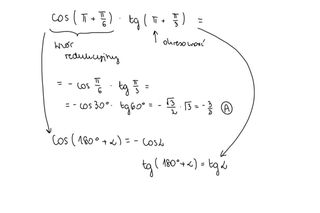 cos(π + π/6) · tg(π + π/3) =
wzór okresowość
redukcyjny
= - cos π/6 · tg π/3 =
= - cos30° · tg60° = - √3/2 · √3 = - 3/2 Ⓐ
cos(180° + α) = - cosα
tg(180° + α) = tgα